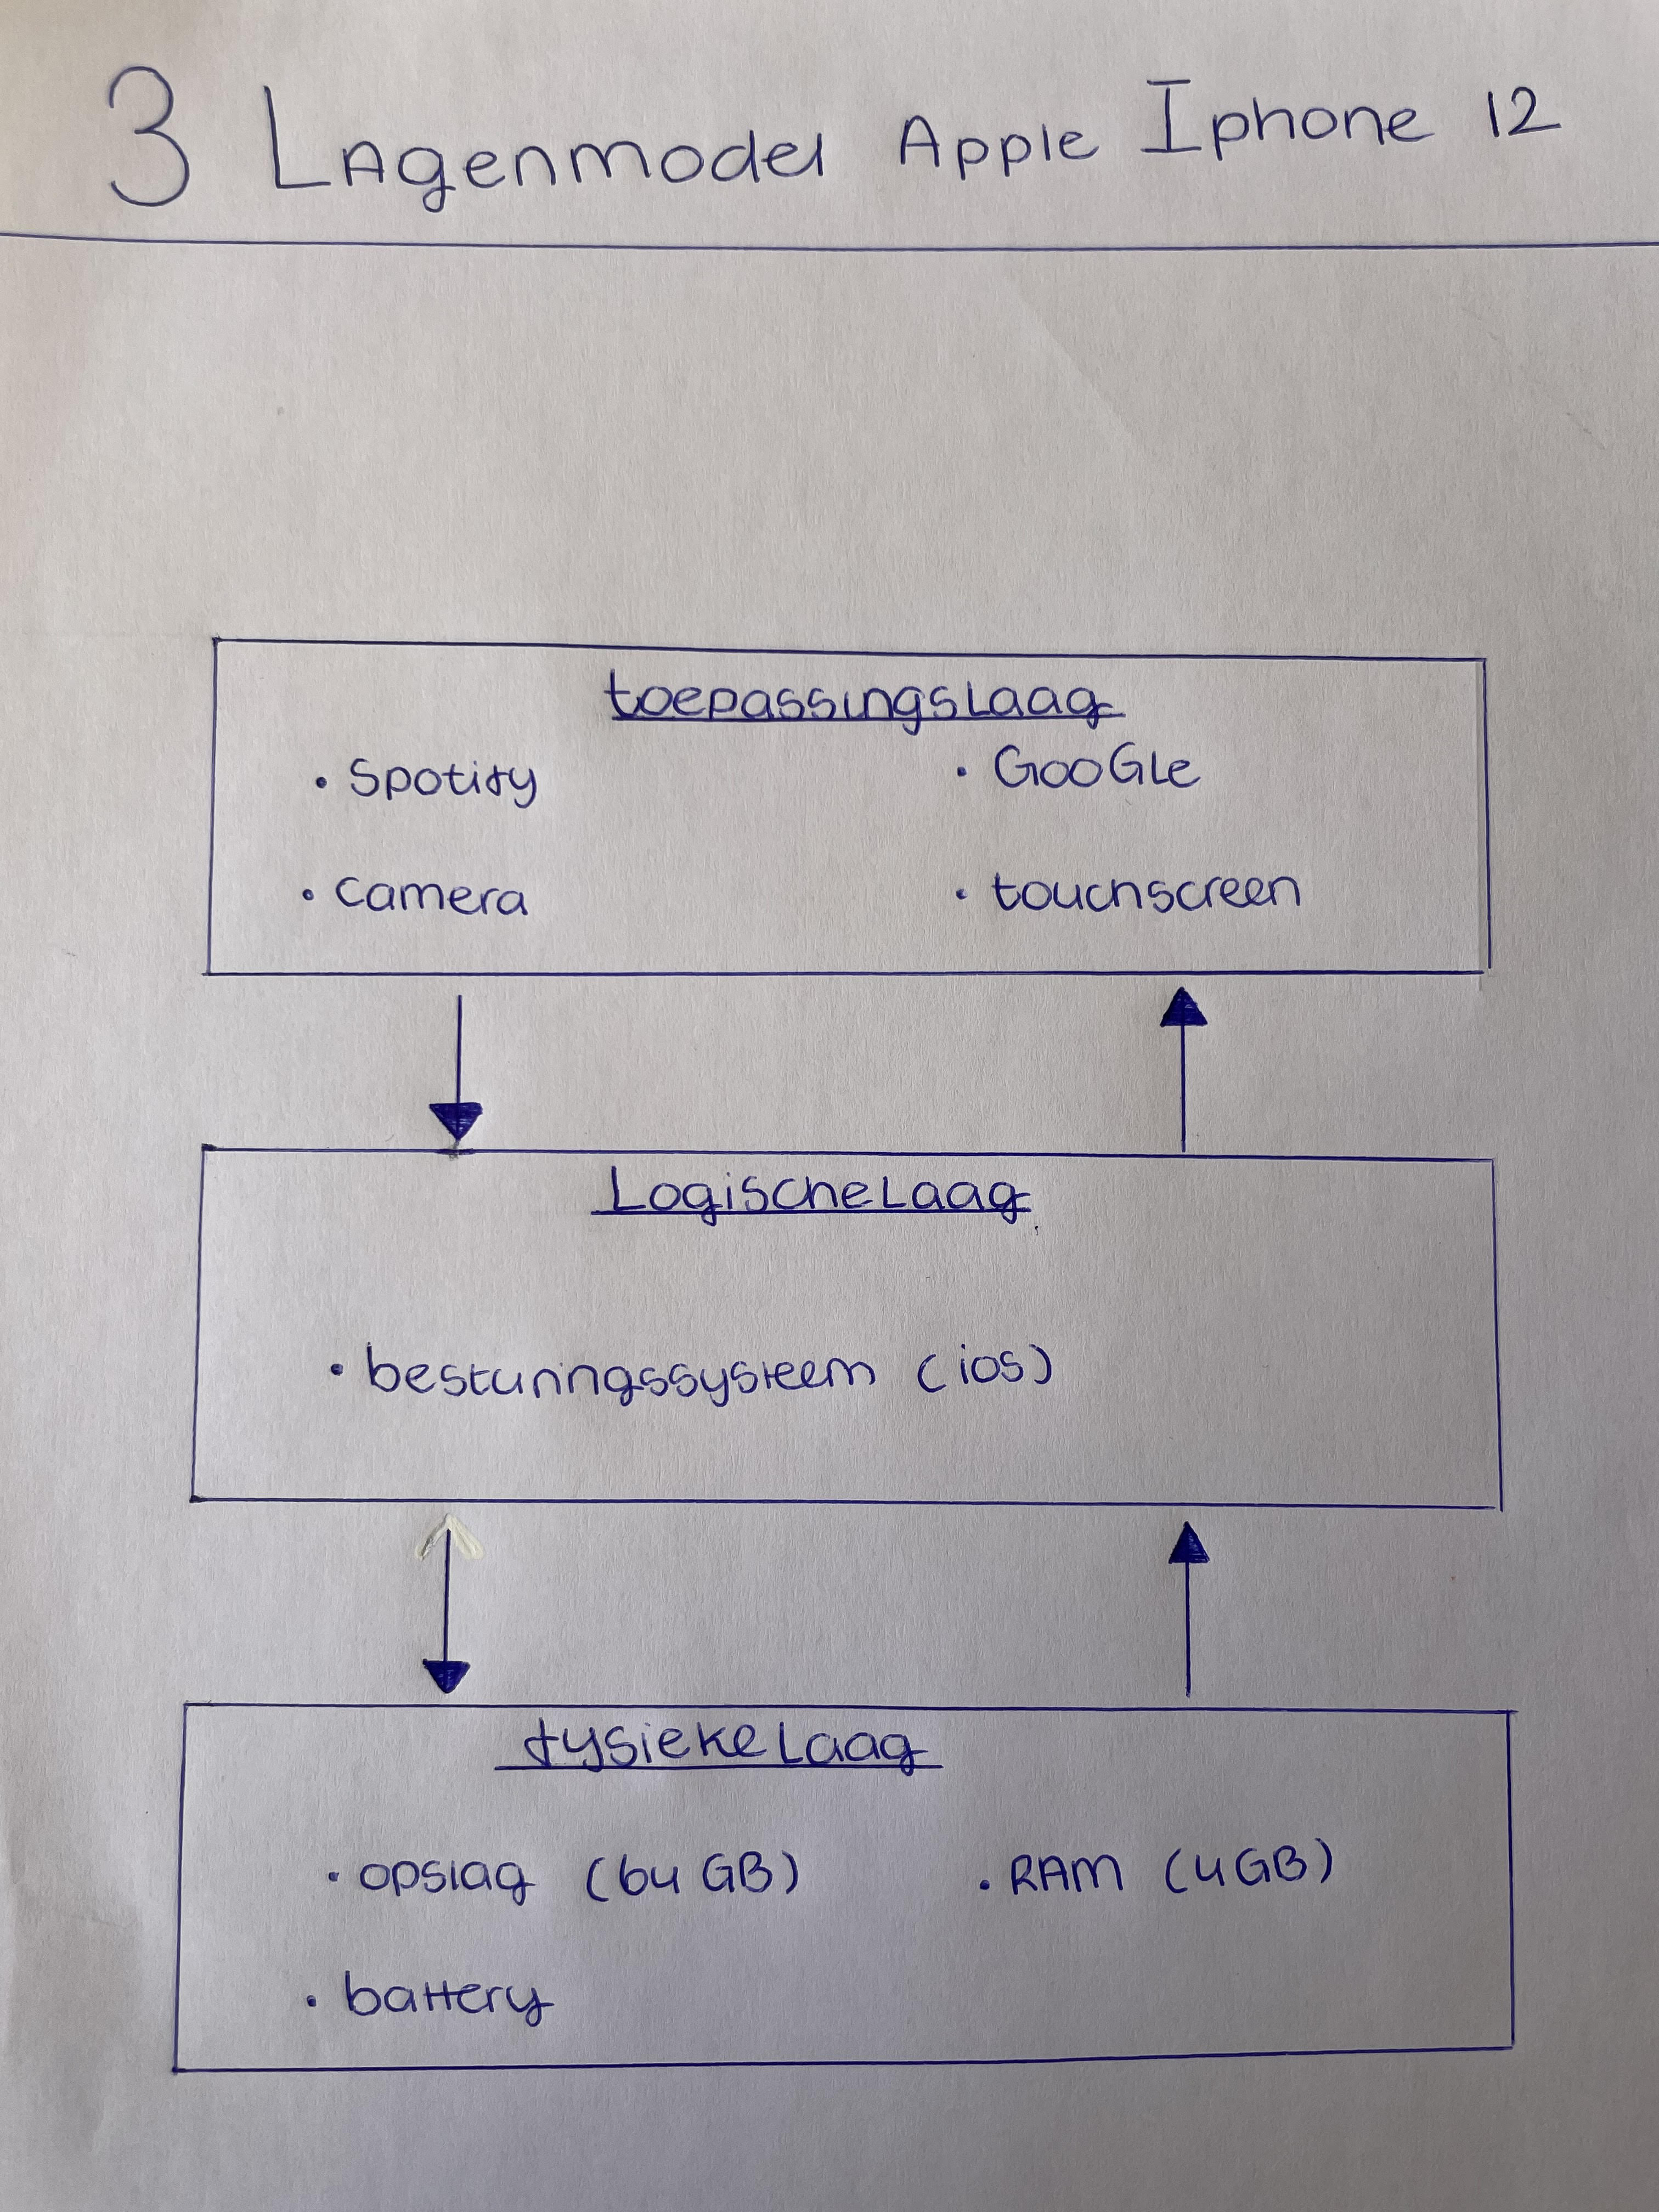 3 Lagenmodel Apple Iphone 12
toepassingslaag
• Spotify • GooGLe
• camera • touchscreen
Logischelaag
• besturingssysteem (ios)
fysieke laag
• opslag (64 GB) • RAM (4GB)
• battery